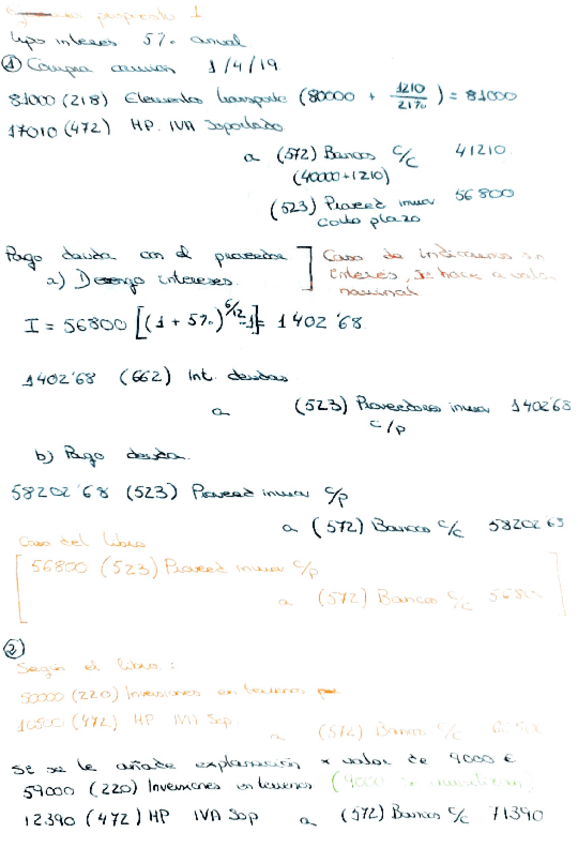 propuesto 1
tipo interes 5% anual
① Compra camion 1/4/19
81000 (218) Elementos transporte (80000 + 1210/21%) = 81000
17010 (472) HP. IVA Soportado
a (572) Bancos c/c 41210
(40000+1210)
(523) Proveed inmov 56800
corto plazo
Pago deuda con el proveedor
a) Devengo intereses.
Caso de indicarnos sin
interés, se hace a valor
nominal
I = 56800 [(1 + 5%)^6/12 -1] = 1402'68
1402'68 (662) Int. deudas
a (523) Proveedores inmov 1402'68
c/p
b) Pago deuda.
58202'68 (523) Proveed inmov c/p
a (572) Bancos c/c 58202 68
Caso del libro
56800 (523) Proveed inmov c/p
a (572) Bancos c/c
②
Según el libro:
50000 (220) Inversiones en terrenos
10500 (472) HP IVA Sop.
a (572) Bancos c/c
se se le añade explanación x valor de 9000 €
59000 (220) Inversiones en terrenos (9000
12390 (472) HP IVA Sop a (572) Bancos c/c 71390